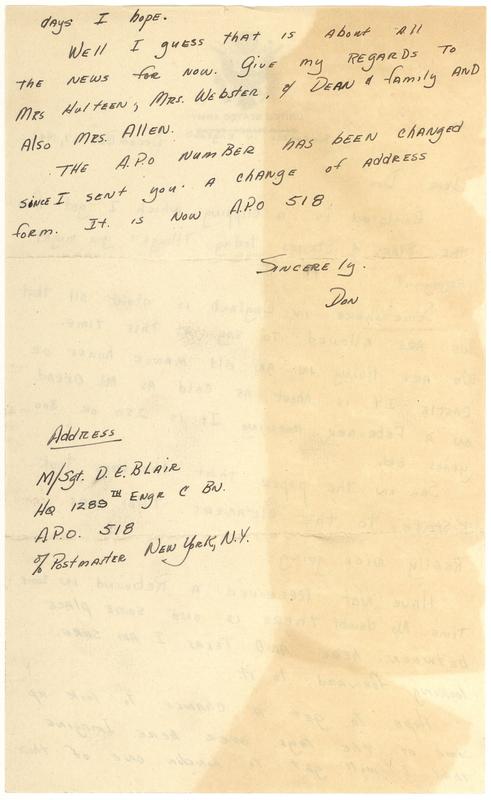 days I hope.
Well I guess that is about all
the news for now. Give my regards to
Mrs Hulteen, Mrs. Webster, & Dean & family and
Also Mrs. Allen.
The A.P.O number has been changed
since I sent you a change of address
form. It is now A.P.O 518.
Sincerely.
Don
Address
M/Sgt. D. E. Blair
HQ 1289TH Engr C Bn.
A.P.O. 518
% Postmaster New York, N.Y.